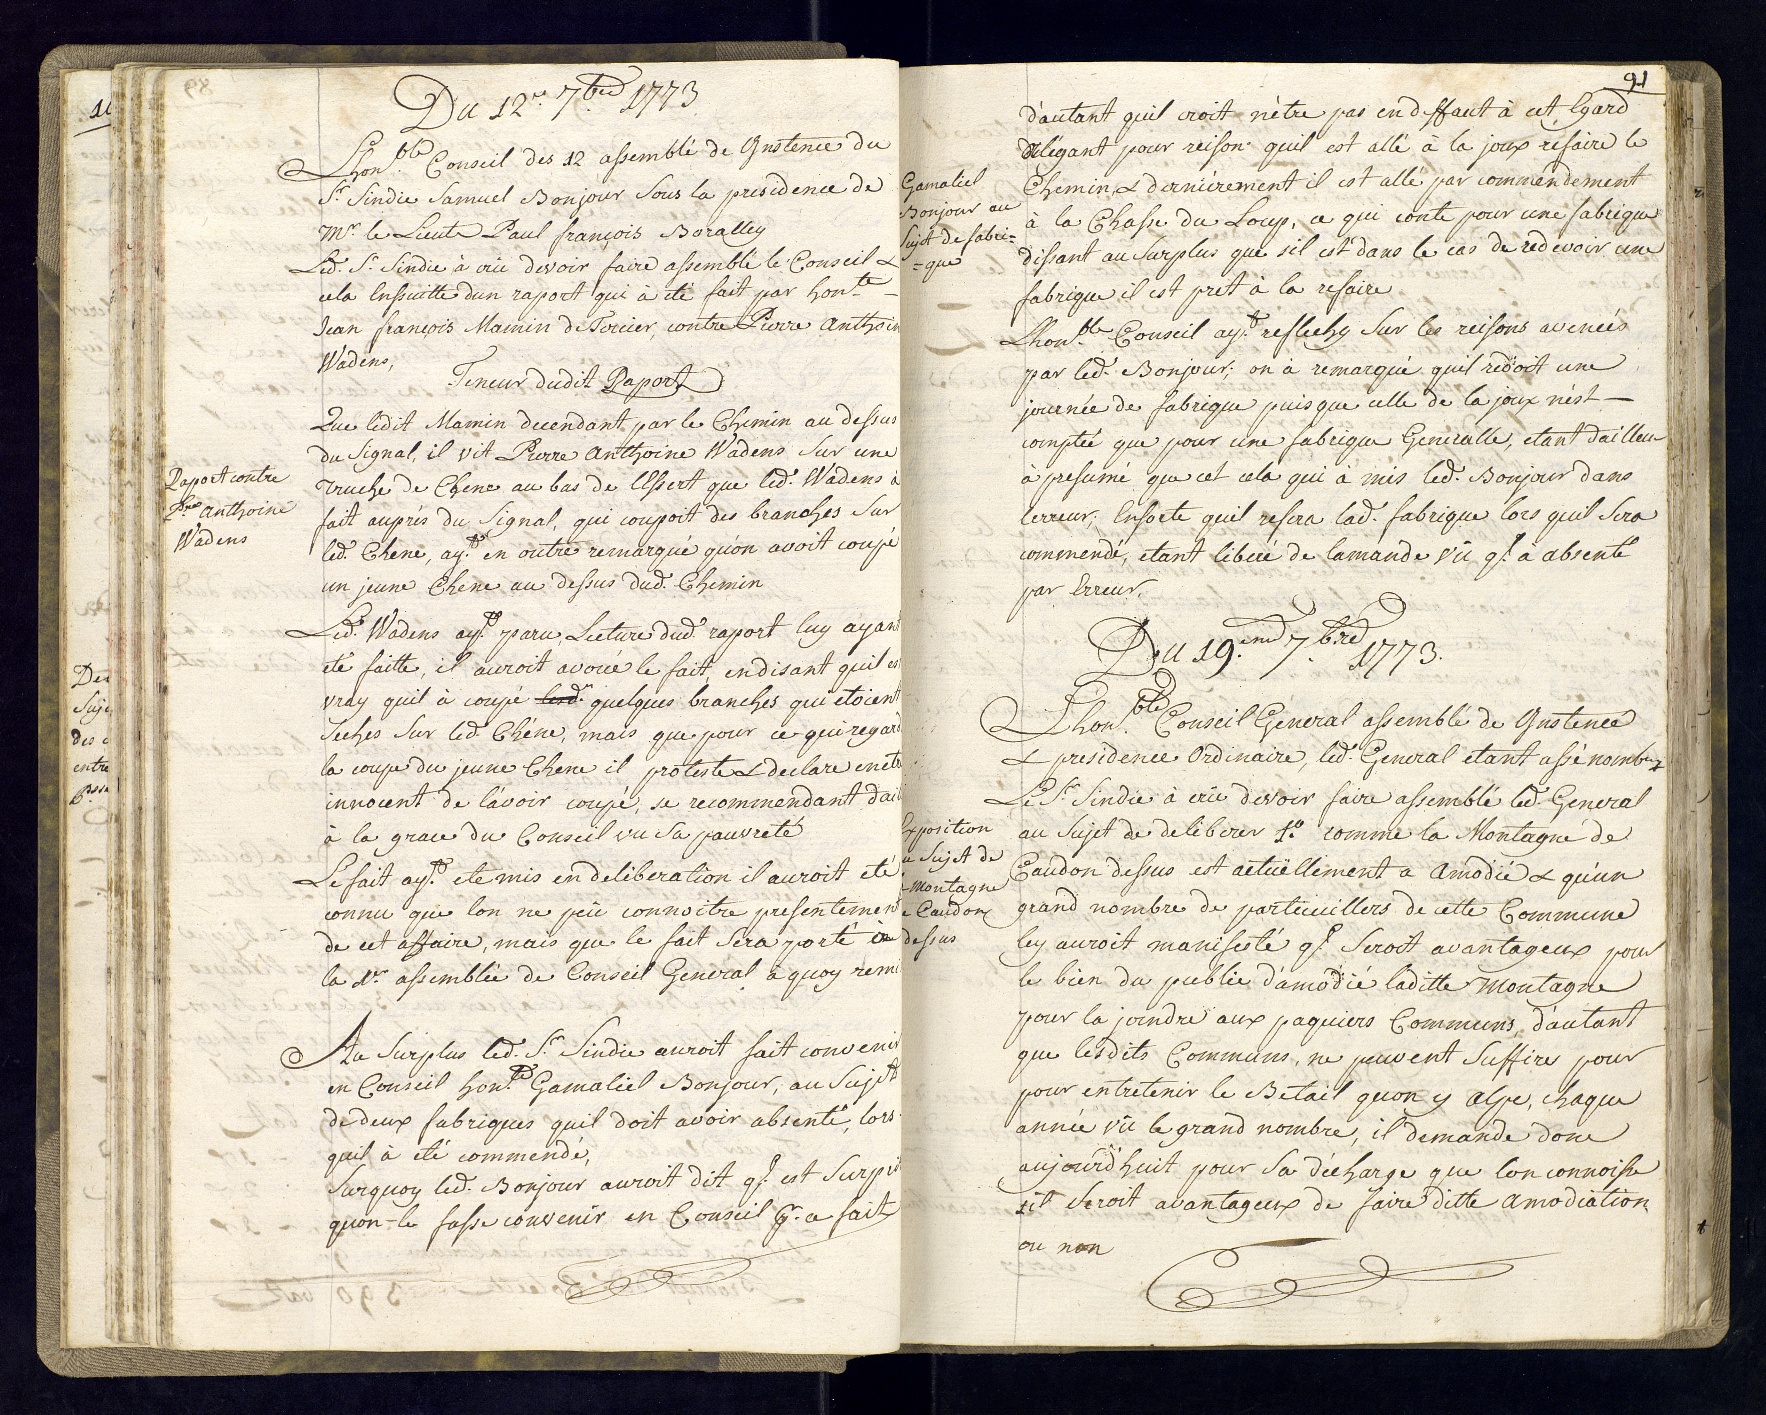 Du 12.e 7.bre 1773
Lhon.ble Conseil des 12 assemblé de Jnstence du
S.r Sindic Samuel Bonjour Sous la presidence de
M.r le Lieut.t Paul françois Boralley
Led. S.r Sindic à crû devoir faire assemblé le Conseil &
cela Ensuitte dun raport qui à été fait par hon.te
Jean françois Mamin de Forcier, contre Pierre Anthoin
Wadens,
Teneur dudit Raport
Que ledit Mamin decendant par le Chemin au dessus
du Signal, il vit Pierre Anthoine Wadens Sur une
truche de Chene au bas de lEssert que led. Wadens à
Raport contre
P.rre anthoine
Wadens
fait auprés du Signal, qui coupoit des branches Sur
led. Chene, ay.t en outre remarqué qu'on avoit coupé
un jeune Chene au dessus dud. Chemin
Led. Wadens ay.t paru Lecture dud. raport luy ayant
eté faitte, il auroit avoué le fait, en disant quil es
vray quil à coupé led. quelques branches qui etoient
Seches Sur led. Chéne, mais que pour ce qui regard
la coupe du jeune Chene il proteste & declare en etr
innocent de lávoir coupé, se recommendant dail
à la grace du Conseil vu Sa pauvreté
Le fait ay.t eté mis en deliberation il auroit eté
connu que lon ne peu connoitre presentement
de cet affaire, mais que le fait Sera porté à
la 1.re assemblée de Conseil General à quoy remi
Au Surplus led. S.r Sindic auroit fait convenir
en Conseil hon.te Gamaliel Bonjour, au Sujet
de deux fabriques quil doit avoir absenté, lors
quil à été commendé,
Surquoy led. Bonjour auroit dit q.l est Surpri
quon-le fasse convenir en Conseil q.l a fait
91
dautant quil croit nétre pas en deffaut à cet Egard
alégant pour reison quil est allé à la joux refaire le
Gamaliel
Bonjour au
Sujet de fabri=
=que
Chemin, & derniérement il est allé par commendement
à la Chasse du Loup, ce qui conte pour une fabrique
dissant au Surplus que sil est dans le cas de redevoir une
fabrique il est pret à la refaire
Lhon.ble Conseil ay.t reflechy Sur les reisons avencés
par led. Bonjour; on à remarqué quil redoit une
journée de fabrique puis que celle de la joux nést
comptée que pour une fabrique Generalle, etant dailleu
à presumé que cet cela qui à mis led. Bonjour dans
lerreur; Ensorte quil refera lad. fabrique lors quil Sera
commendé, etant liberé de lamande vû q.l à absenté
par Erreur.
Du 19.eme 7.bre 1773.
Lhon.ble Conseil General assemblé de Jnstence
& presidence Ordinaire, led. General etant assé nombreux
Le S.r Sindic à crû devoir faire assemblé led. General
au Sujet de deliberer 1.o comme la Montagne de
Exposition
au Sujet de
la Montagne
de Caudon
dessus
Caudon dessus est actuëllement a Amodié & qu'un
grand nombre de particuillers de cette Commune
ley auroit manifesté q.l Seroit avantageux pour
le bien du public d'amodié laditte Montagne
pour la joindre aux paquiers Communs, d'autant
que lesdits Communs, ne peuvent Suffire pour
pour entretenir le Betail quon y alpe, chaque
année vû le grand nombre, il demande donc
aujourd'huit pour Sa décharge que lon connoisse
sil Seroit avantageux de faire ditte Amodiation
ou non